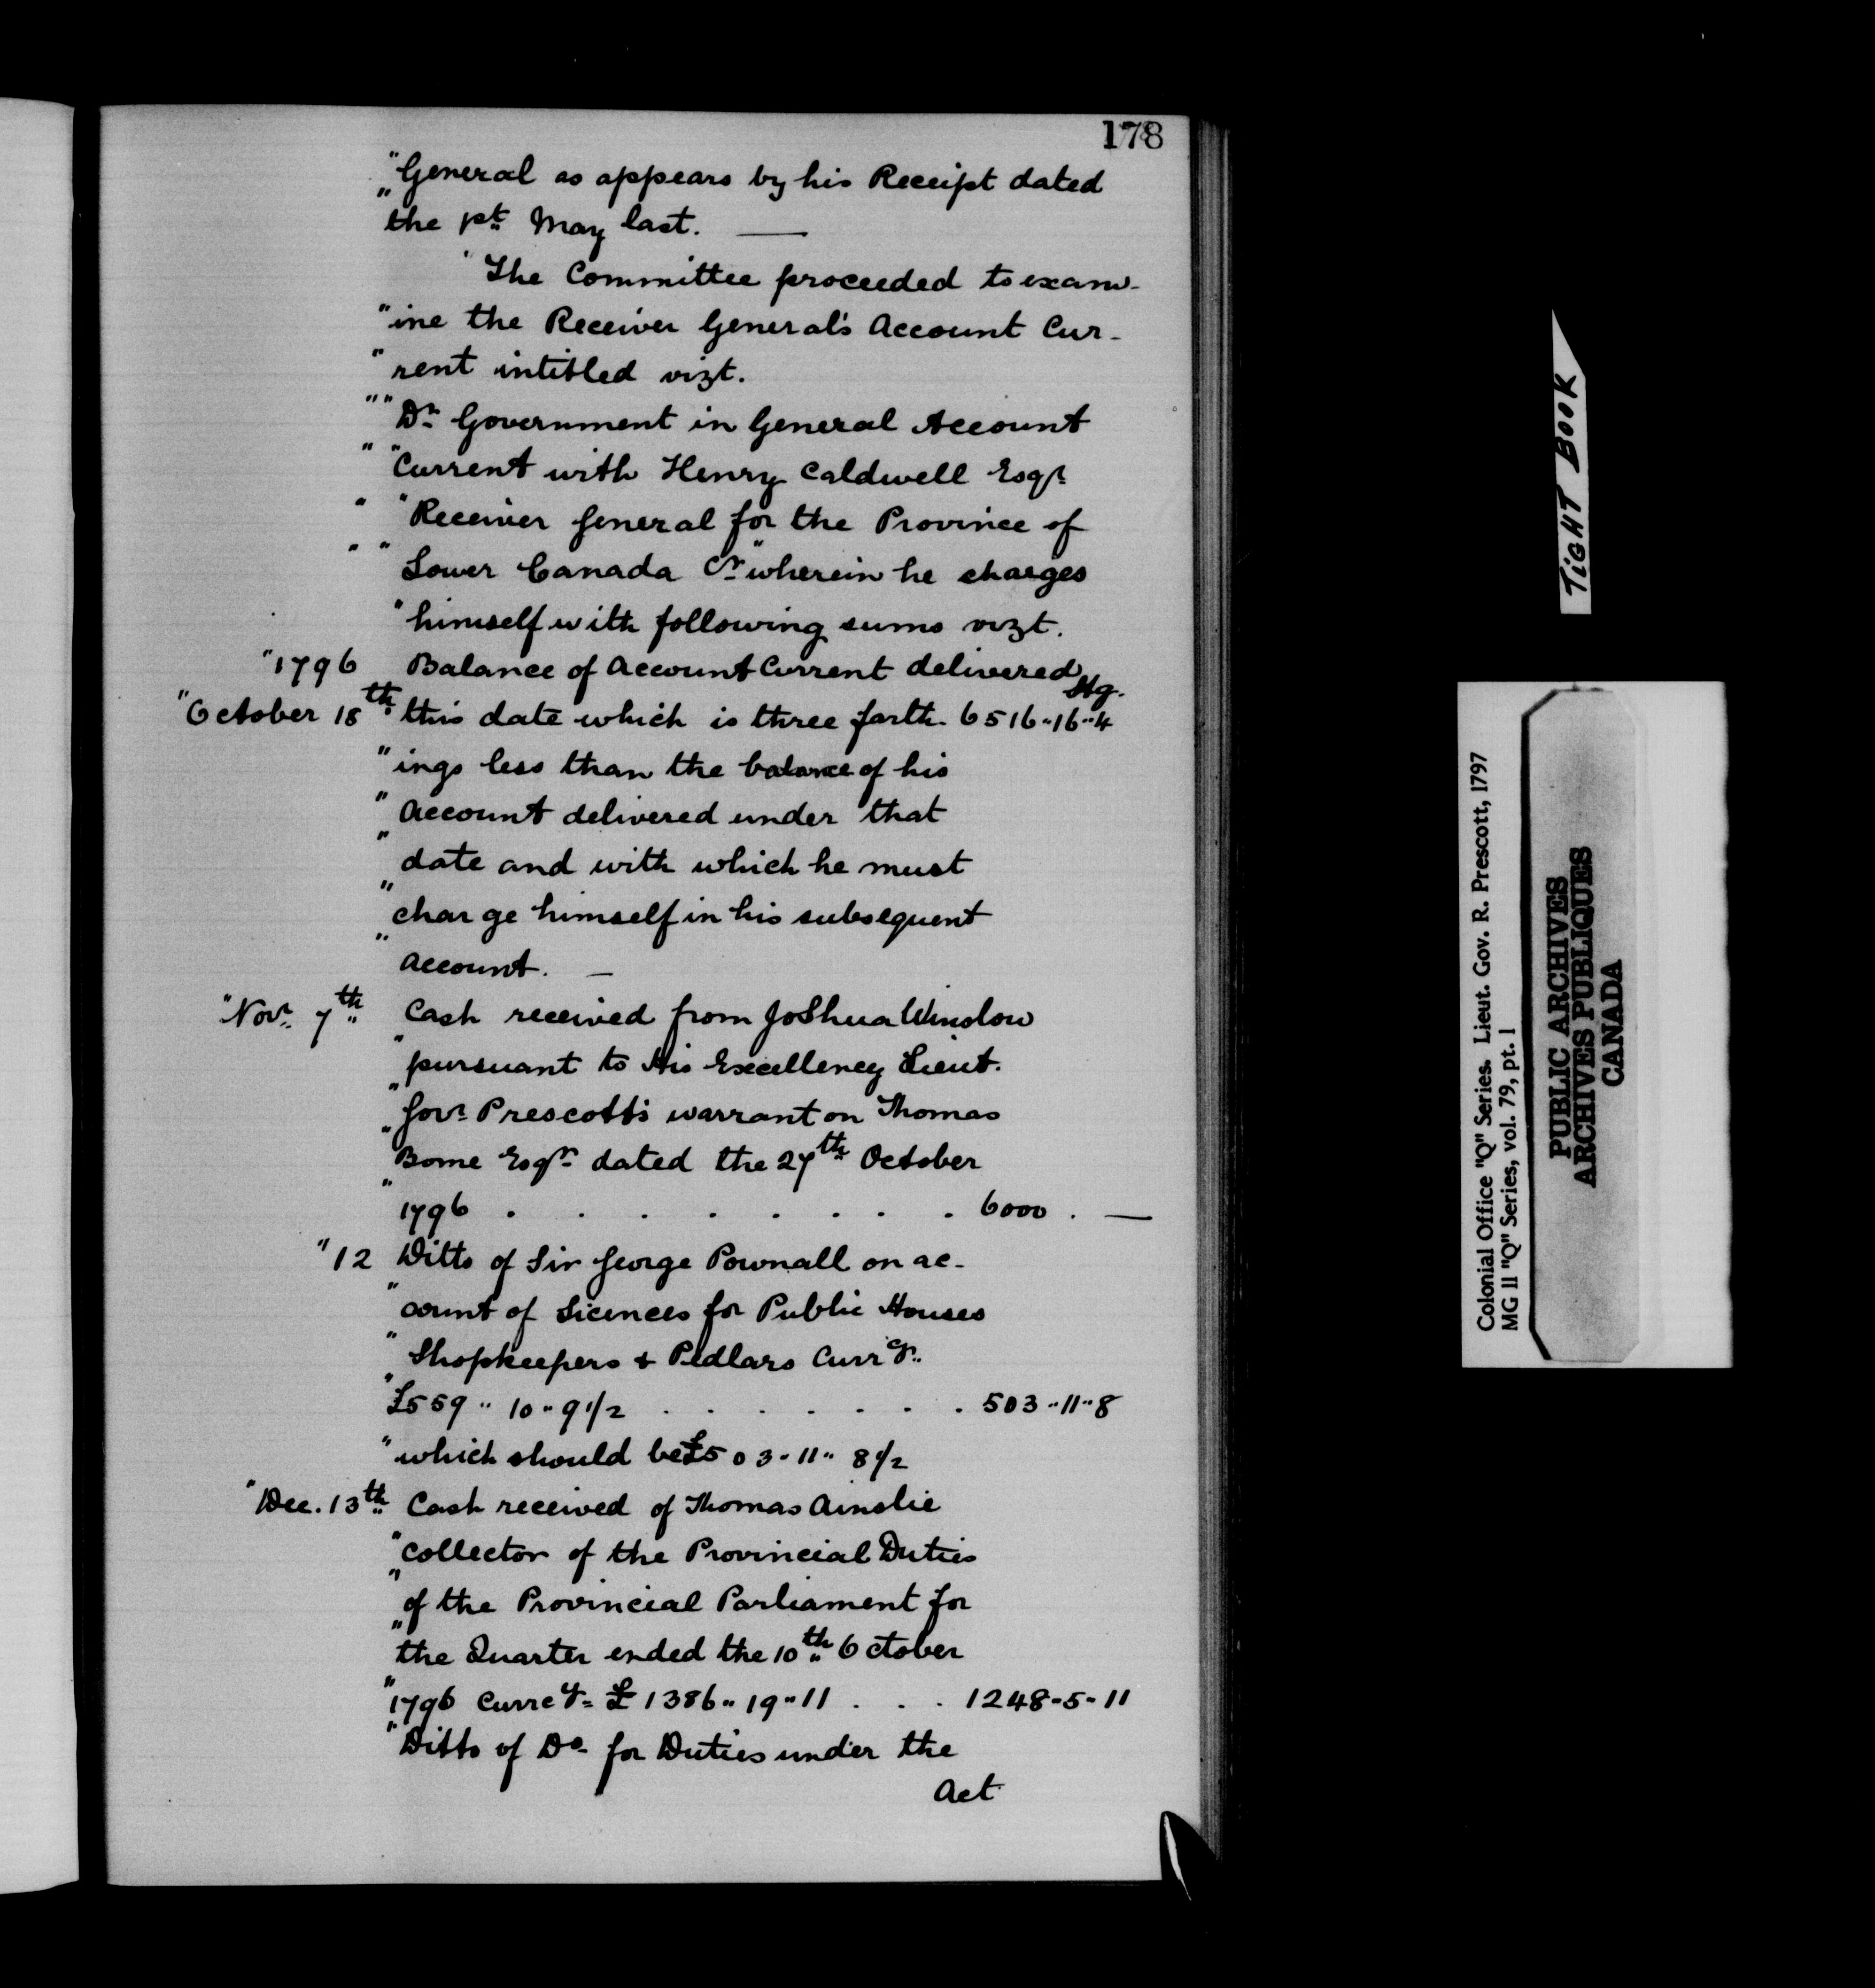 178
"General as appears by his Receipt dated
"the 1st May last. —
"The Committee proceeded to exam-
"ine the Receiver General's Account Cur-
"rent intitled vizt.
""Dr Government in General Account
""Current with Henry Caldwell Esqr
""Receiver General for the Province of
""Lower Canada Cr" wherein he charges
"himself with following sums vizt.
"1796 Balance of Account Current delivered Stg.
"October 18th this date which is three farth- 6516"16"4
"ings less than the balance of his
"Account delivered under that
"date and with which he must
"charge himself in his subsequent
"Account. —
"Novr 7th Cash received from Joshua Winslow
"pursuant to His Excellency Lieut.
"Govr Prescott's warrant on Thomas
"Bome Esqr dated the 27th October
"1796 . . . . . . . . 6000 . —
"12 Ditto of Sir George Pownall on ac-
"count of Licences for Public Houses
"Shopkeepers & Pedlars Curry
"£559"10"9 1/2 . . . . . . . 503"11"8
"which should be £503-11"8 1/2
"Dec. 13th Cash received of Thomas Ainslie
"Collector of the Provincial Duties
"of the Provincial Parliament for
"the Quarter ended the 10th October
"1796 Currcy £1386"19"11 . . . 1248-5-11
"Ditto of Do for Duties under the
Act
TIGHT BOOK
Colonial Office "Q" Series. Lieut. Gov. R. Prescott, 1797
MG 11 "Q" Series, vol. 79, pt. 1
PUBLIC ARCHIVES
ARCHIVES PUBLIQUES
CANADA